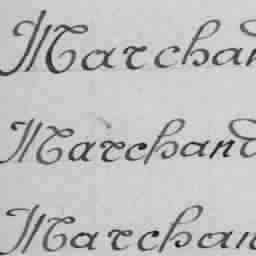 Marchan
Marchand
Marchan